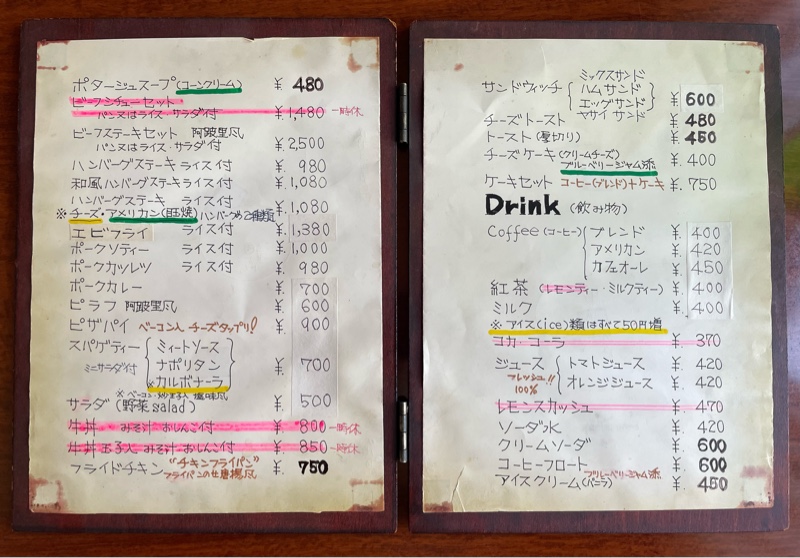 ポタージュスープ(コーンクリーム) ¥. 480
ビーフシチューセット
パン又はライス・サラダ付 ¥.1,480 一時休
ビーフステーキセット 阿波里風
パン又はライス・サラダ付 ¥.2,500
ハンバーグステーキ ライス付 ¥. 980
和風ハンバーグステーキ ライス付 ¥.1,080
ハンバーグステーキ ライス付 ¥.1,080
※チーズ・アメリカン(目玉焼) ハンバーグ 2種類
エビフライ ライス付 ¥.1,380
ポークソティー ライス付 ¥.1,000
ポークカツレツ ライス付 ¥. 980
ポークカレー ¥. 700
ピラフ 阿波里風 ¥. 600
ピザパイ ベーコン入 チーズタップリ! ¥. 900
スパゲティー ミートソース
ミニサラダ付 ナポリタン ¥. 700
※カルボナーラ
サラダ(野菜salad) ¥. 500
牛丼 みそ汁 おしんこ付 ¥. 800 一時休
牛丼 玉子入 みそ汁 おしんこ付 ¥. 850 一時休
フライドチキン "チキンフライパン" ¥. 750
フライパンのせ唐揚風
サンドウィッチ ミックスサンド
ハムサンド
エッグサンド ¥ 600
ヤサイサンド
チーズトースト ¥. 480
トースト(厚切り) ¥. 450
チーズケーキ(クリームチーズ) ¥. 400
ブルーベリージャム添
ケーキセット コーヒー(ブレンド)+ケーキ ¥. 750
Drink (飲み物)
Coffee(コーヒー) ブレンド ¥. 400
アメリカン ¥. 420
カフェオーレ ¥. 450
紅茶(レモンティー・ミルクティー) ¥. 400
ミルク ¥. 400
※アイス(ice)類はすべて50円増
コカ・コーラ ¥. 370
ジュース トマトジュース ¥. 420
フレッシュ!! 100% オレンジジュース ¥. 420
レモンスカッシュ ¥. 470
ソーダ水 ¥. 420
クリームソーダ ¥. 600
コーヒーフロート ¥. 600
ブルーベリージャム添
アイスクリーム(バニラ) ¥. 450